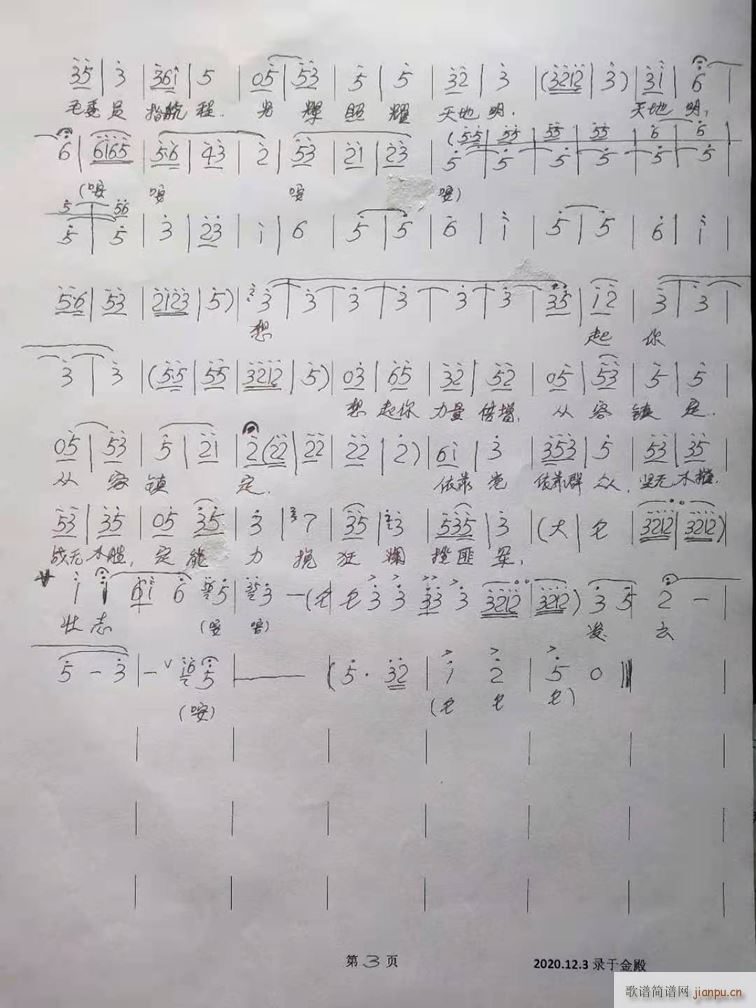 3 5 | 3 | 3 6 1 | 5 | 0 5 | 5 3 | 5 | 5 | 3 2 | 3 | (3 2 1 2 | 3) | 3 1 | 6
毛委员 指航程. 光 辉 照 耀 天地明. 天地明,
6 | 6 1 6 5 | 5 6 | 4 3 | 2 | 5 3 | 2 1 | 2 3
5 | 3 | 2 3 | 1 | 6 | 5 | 5 | 6 | 1 | 5 | 5 | 6 | 1
5 6 | 5 3 | 2 1 2 3 | 5) | 3 | 3 | 3 | 3 | 3 | 3 | 3 5 | 1 2 | 3 | 3
想 起 你
3 | 3 | (5 5 | 5 5 | 3 2 1 2 | 5) | 0 3 | 6 5 | 3 2 | 5 2 | 0 5 | 5 3 | 5 | 5
想 起你 力量 倍增, 从 容 镇 定.
0 5 | 5 3 | 5 | 2 1 | 2 (2 2 | 2 2 | 2 2 | 2) | 6 1 | 3 | 3 5 3 | 5 | 5 3 | 3 5
从 容 镇 定. 依靠 党 依靠群 众, 坚无 不摧.
5 3 | 3 5 | 0 5 | 3 5 | 3 | 7 | 3 5 | 3 | 5 3 5 | 3 | (大 | 七 | 3 2 1 2 | 3 2 1 2)
战无 不胜, 定 能 力 挽 狂 澜
壮 志
5 - 3 | - 5 | (5 . 3 2 | 1 2 | 5 0
第 3 页
2020.12.3 录于金殿
歌谱简谱网
jianpu.cn